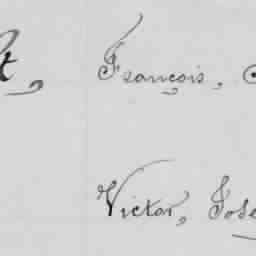 t, François,
Victor, Jose